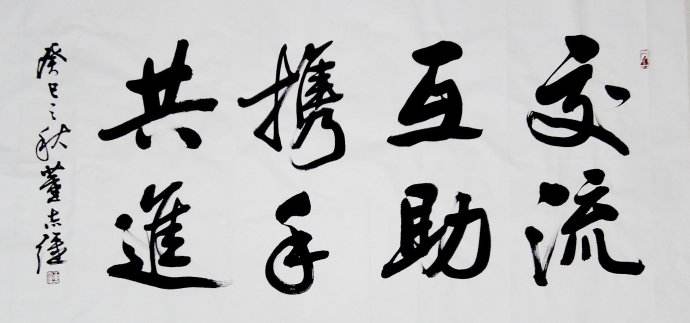 交流
互助
携手
共進
癸巳之秋董志强